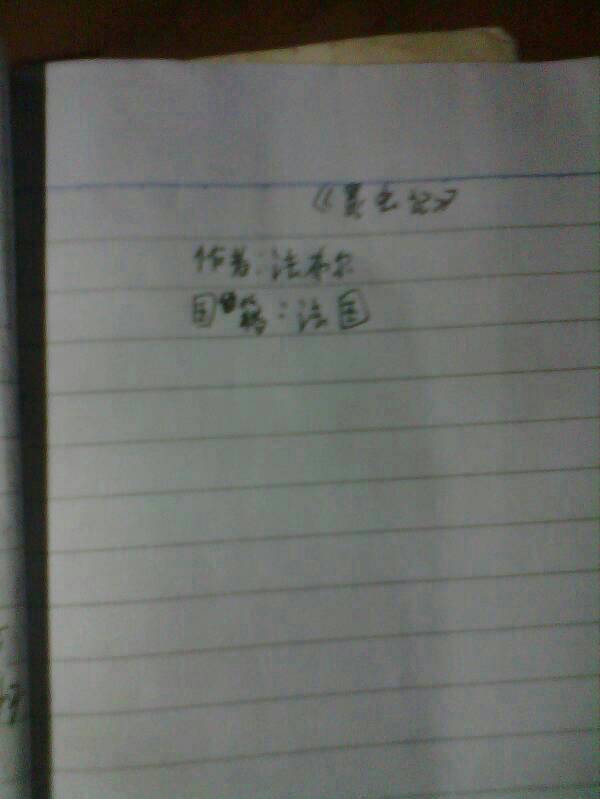 《昆虫记》
作者:法布尔
国籍:法国